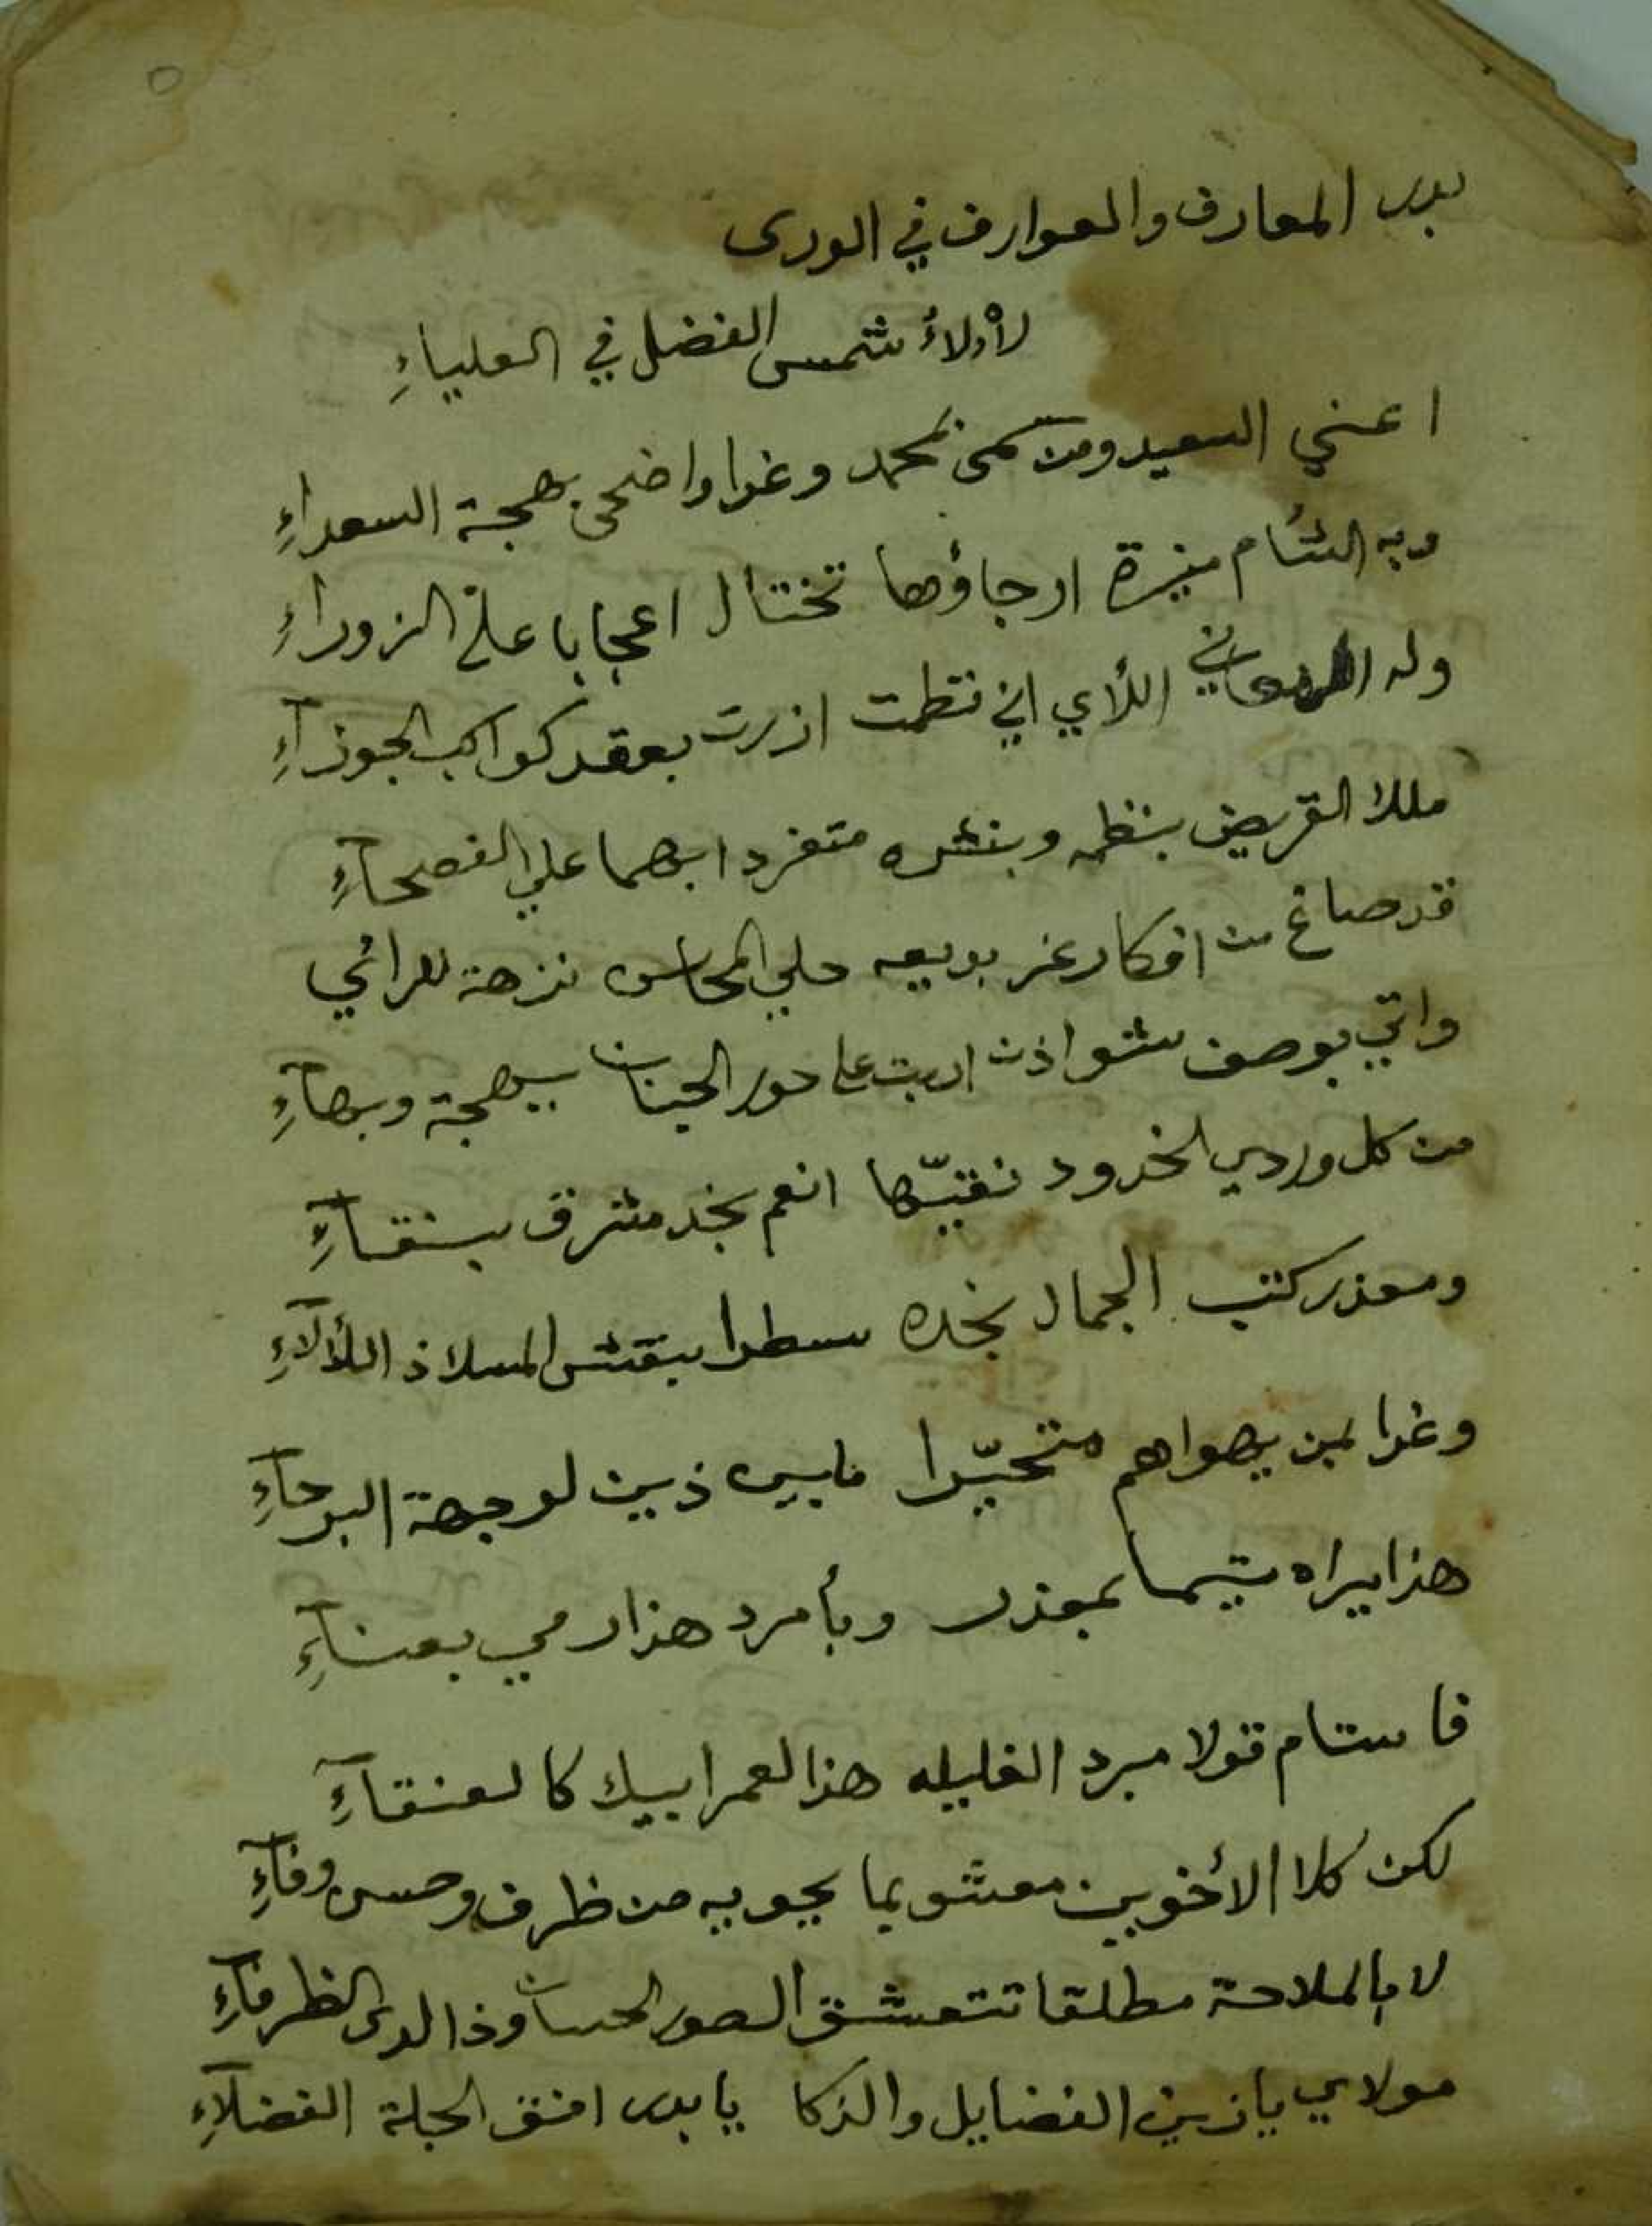 بدر المعارف والعوارف في الورى
لألاء شمس الفضل في العلياءِ
اعني السعيد ومن سمى بمحمد وغدا واضحى بهجة السعداءِ
وبه الشام منيرة ارجاؤها تختال اعجابا على الزوراءِ
وله اللأي ان نظمت ازرت بعقد كواكب الجوزآءِ
ملك القريض بنظمه وبنثره متفردا بهما علي الفصحآءِ
قد صاغ من افكار غر بديعه حلي المحاسن نزهة للرائي
واتي بوصف شوادن اربت على حور الجنان ببهجة وبهآءِ
من كل وردي الخدود نقيّها انعم بخد مشرق بنقآءِ
ومعذر كتب الجمال بخده سطرا بنقش المسلاذ اللألآءِ
وغدا لمن يهواهم متحيّرا مابين ذين لوجهة البرحآءِ
هذا يراه متيما بمعذر وبأمرد هذا رمي بعنآءِ
فاستام قولا مبرد الغليله هذا لعمر ابيك كالعنقآءِ
لكن كلا الأخوين معشو بما يحويه من ظرف وحسن وفآءِ
لا بالملاحة مطلقا تتعشق الصور الحسان وذا لدى الظرفآءِ
مولاي يا زين الفضايل والذكا يا بدر افق الجلة الفضلآءِ